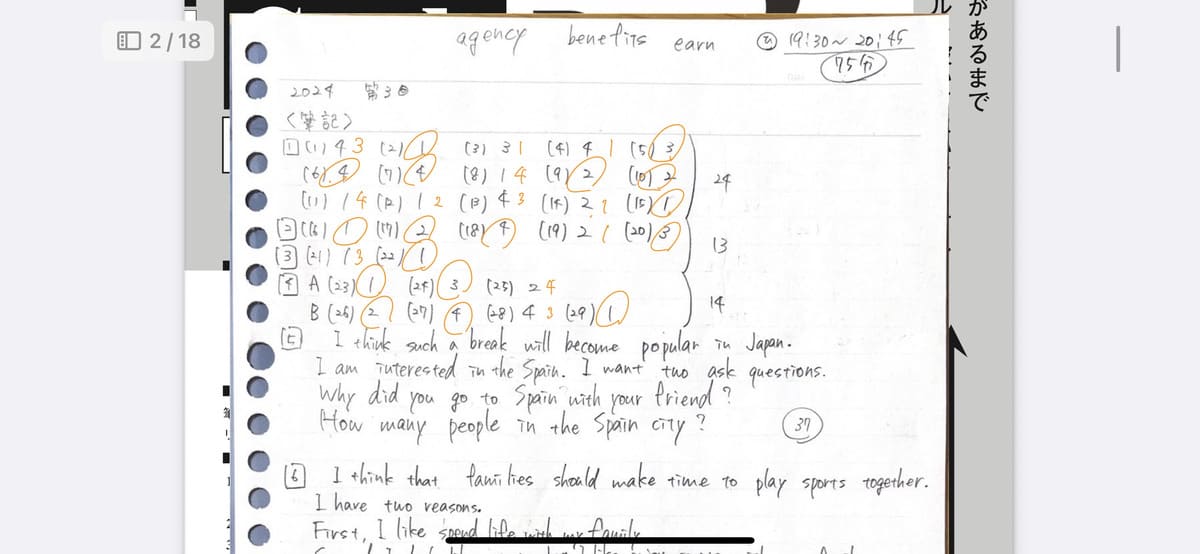 2/18
があるまで
agency benefits earn ㋑ 19:30~ 20:45
75分
2024 第3回
〈筆記〉
1 (1) 4 3 (2) 1 (3) 3 1 (4) 4 1 (5) 3
(6) 4 (7) 4 (8) 1 4 (9) 2 (10) 2
24
(11) 1 4 (12) 1 2 (13) 4 3 (14) 2 (15) 1
2 (16) 1 (17) 2 (18) 4 (19) 2 1 (20) 3
13
3 (21) 1 3 (22) 1
4 A (23) 1 (24) 3 (25) 2 4
14
B (26) 2 (27) 4 (28) 4 3 (29) 1
5 I think such a break will become popular in Japan.
I am interested in the Spain. I want two ask questions.
Why did you go to Spain with your friend?
How many people in the Spain city?
37
6 I think that families should make time to play sports together.
I have two reasons.
First, I like spend life with my family